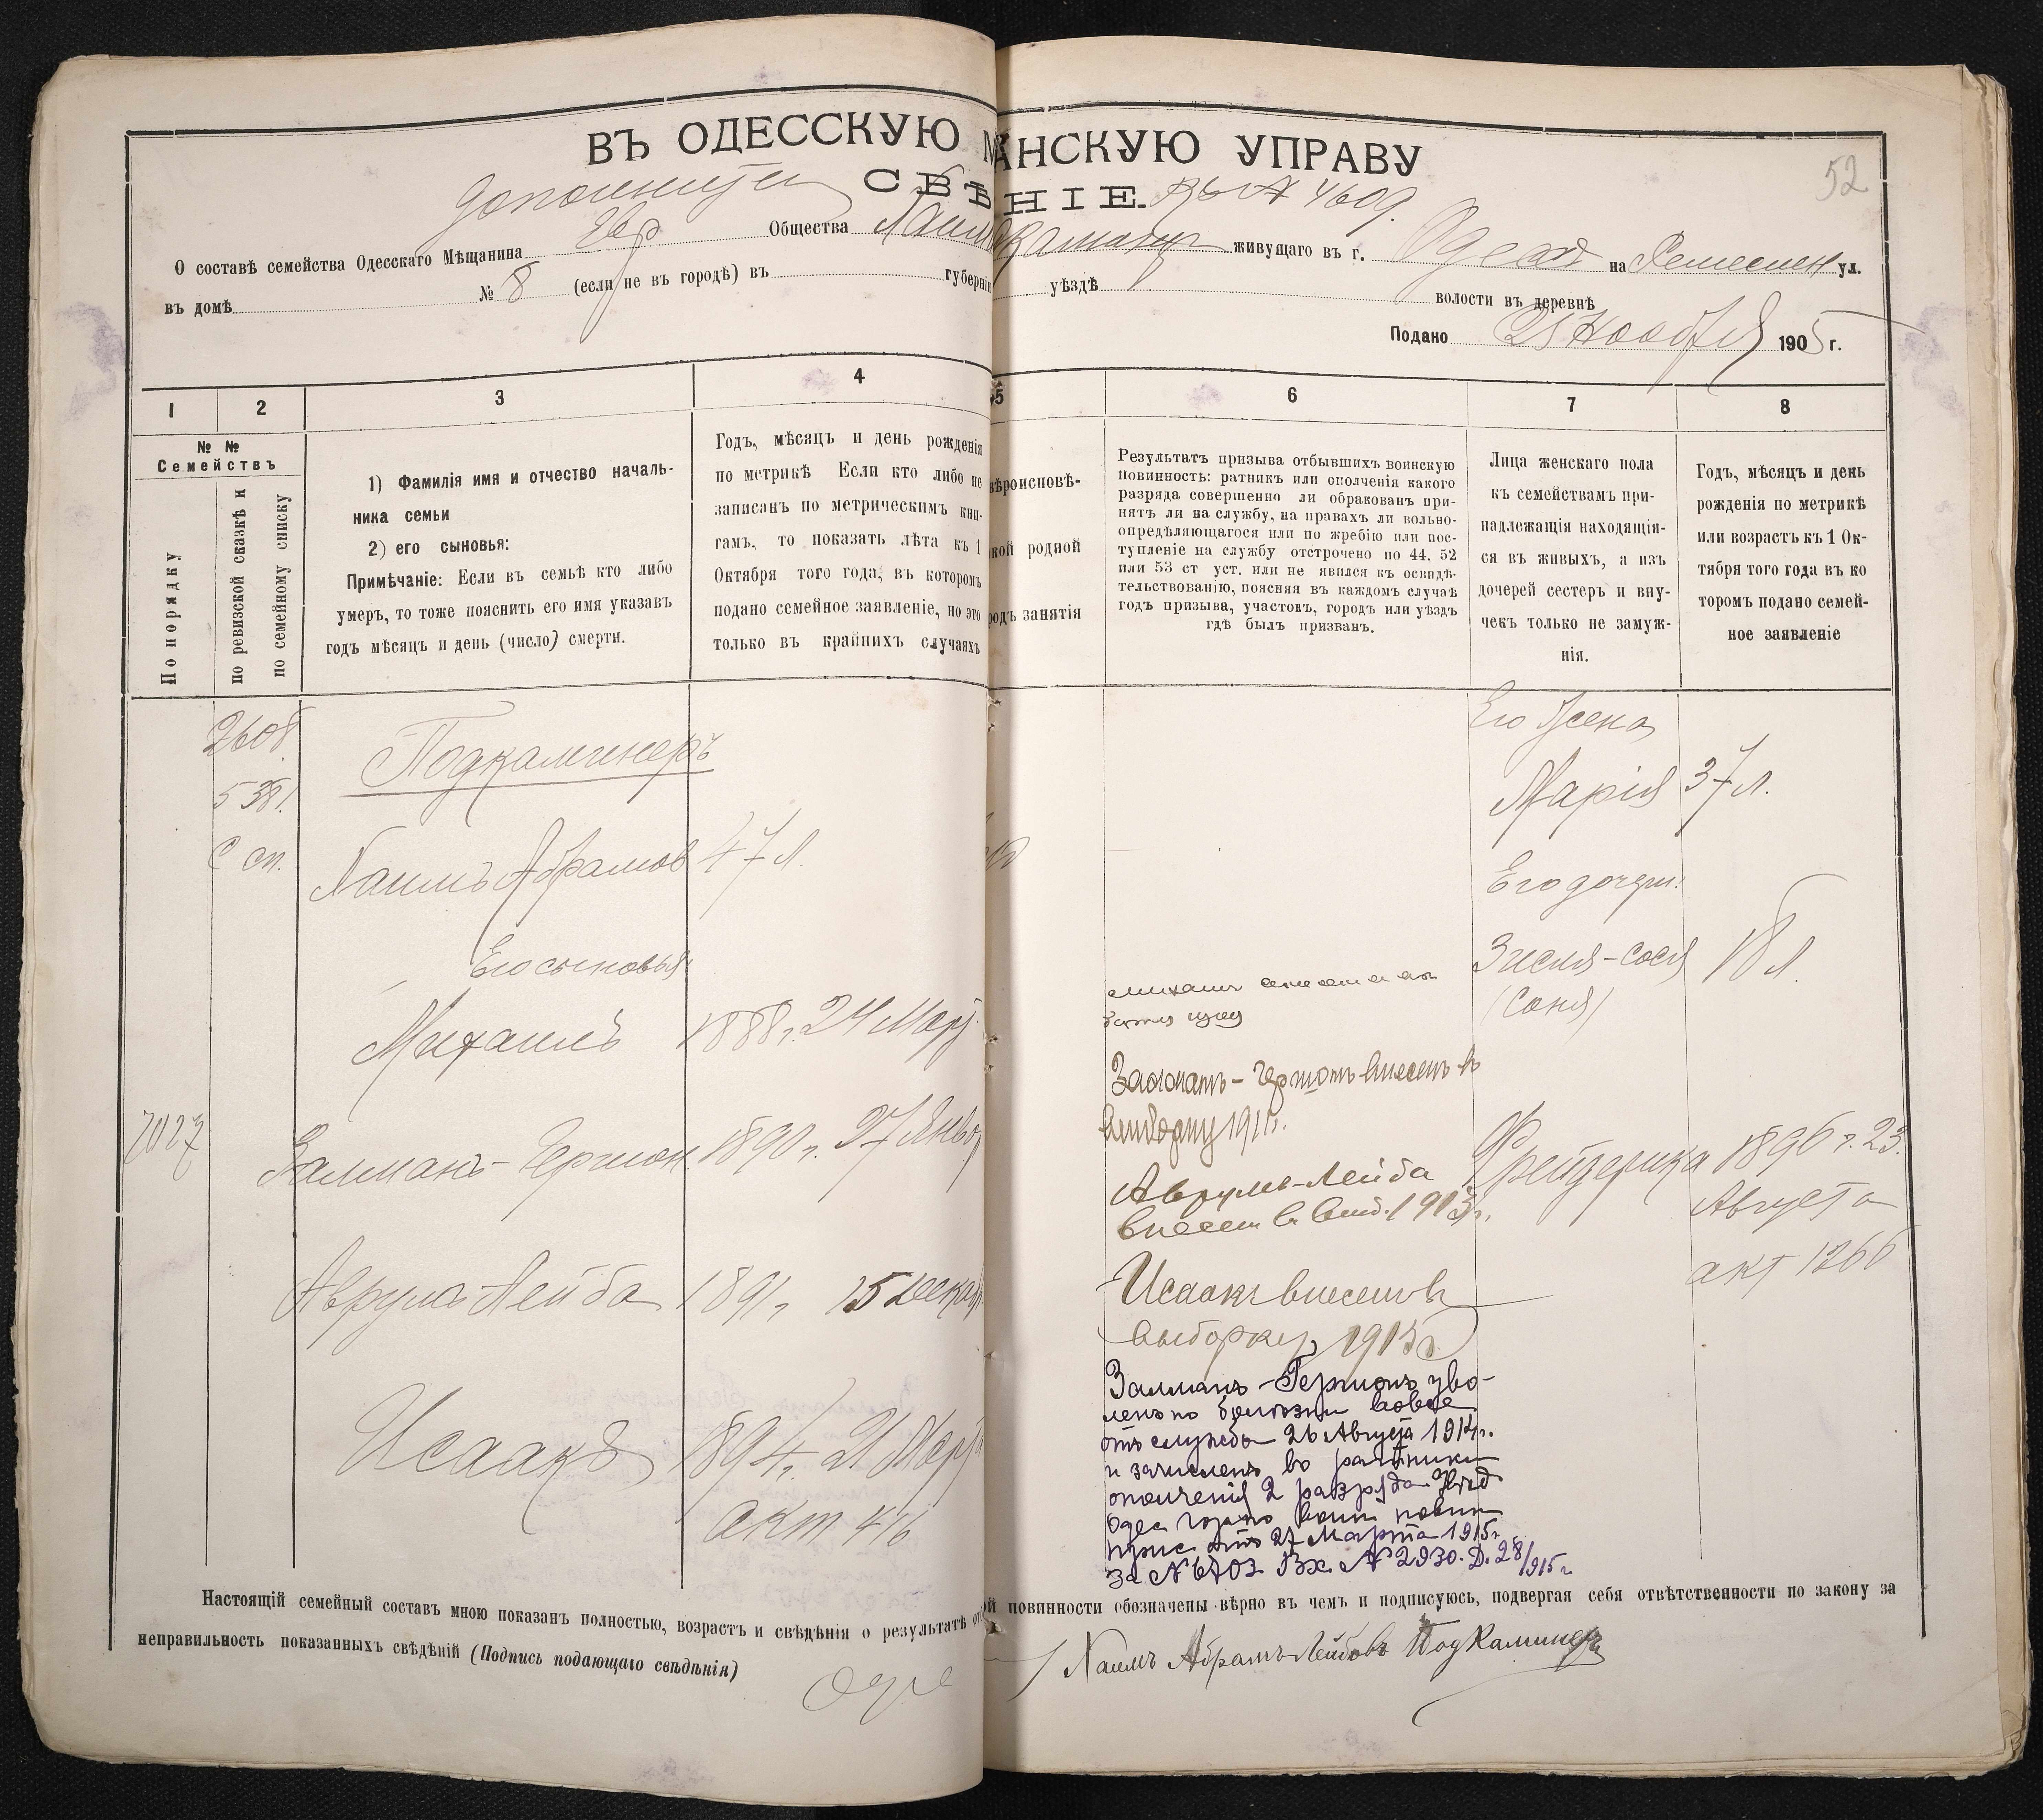 52
ВЪ ОДЕССКУЮ М АНСКУЮ УПРАВУ
СВѢ НІЕ. 4609.
О составѣ семейства Одесскаго Мѣщанина Евр Общества живущаго въ г. Одессѣ на Ремеслен ул.
въ домѣ № 8 (если не въ городѣ) въ губерніи уѣздѣ волости въ деревнѣ
Подано Ноября 1905 г.
1 2 3 4 5 6 7 8
№ №
Семействъ
По порядку
по ревизской сказкѣ и
по семейному списку
1) Фамилія имя и отчество началь-
ника семьи
2) его сыновья:
Примѣчаніе: Если въ семьѣ кто либо
умеръ, то тоже пояснить его имя указавъ
годъ мѣсяцъ и день (число) смерти.
Годъ, мѣсяцъ и день рожденія
по метрикѣ Если кто либо не
записанъ по метрическимъ кни-
гамъ, то показать лѣта къ 1
Октября того года, въ которомъ
подано семейное заявленіе, но это
только въ крайнихъ случаяхъ
вѣроисповѣ-
кой родной
родъ занятія
Результатъ призыва отбывшихъ воинскую
повинность: ратникъ или ополченія какого
разряда совершенно ли обракованъ при-
нятъ ли на службу, на правахъ ли вольно-
опредѣляющагося или по жребію или пос-
тупленіе на службу отстрочено по 44, 52
или 53 ст уст. или не явился къ освидѣ-
тельствованію, поясняя въ каждомъ случаѣ
годъ призыва, участокъ, городъ или уѣздъ
гдѣ былъ призванъ.
Лица женскаго пола
къ семействамъ при-
надлежащія находящія-
ся въ живыхъ, а изъ
дочерей сестеръ и вну-
чекъ только не замуж-
нія.
Годъ, мѣсяцъ и день
рожденія по метрикѣ
или возрастъ къ 1 Ок-
тября того года въ ко
торомъ подано семей-
ное заявленіе
Подкаминеръ
с сп.
Хаимъ Абрамов 47 л.
Его сыновья
Михаилъ 1888 г. 24 Мар
7027
Залманъ-Гершон. 1890 г. 27 Янвор
Аврумъ Лейба 1891 г. 15 Декаб
Исаакъ 1894 г. 21 Мар
акт 46
Залманъ-Гершонъ внесенъ в
выборку 1911 г.
Аврумъ-Лейба
внесен в выб. 1913 г.
Исаакъ внесенъ в
выборку 1915 г.
Залманъ-Гершонъ уво-
ленъ по болѣзни вовсе
отъ службы 26 Августа 1914 г.
и зачисленъ въ ратники
ополченія 2 разряда
Одес повин
прис отъ 27 Марта 1915 г.
за № 6703 Вх № 2930. Д. 28/915 г.
Его жена
Марія 37 л.
Его дочери:
Зисля-Сося 18 л.
(Соня)
Фрейдерика 1896 г. 23
Августа
акт 1266
Настоящій семейный составъ мною показанъ полностью, возрастъ и свѣдѣнія о результатѣ от й повинности обозначены вѣрно въ чемъ и подписуюсь, подвергая себя отвѣтственности по закону за
неправильность показанныхъ свѣдѣній (Подпись подающаго свѣдѣнія)
Хаимъ Абрамъ Лейбовъ Подкаминеръ